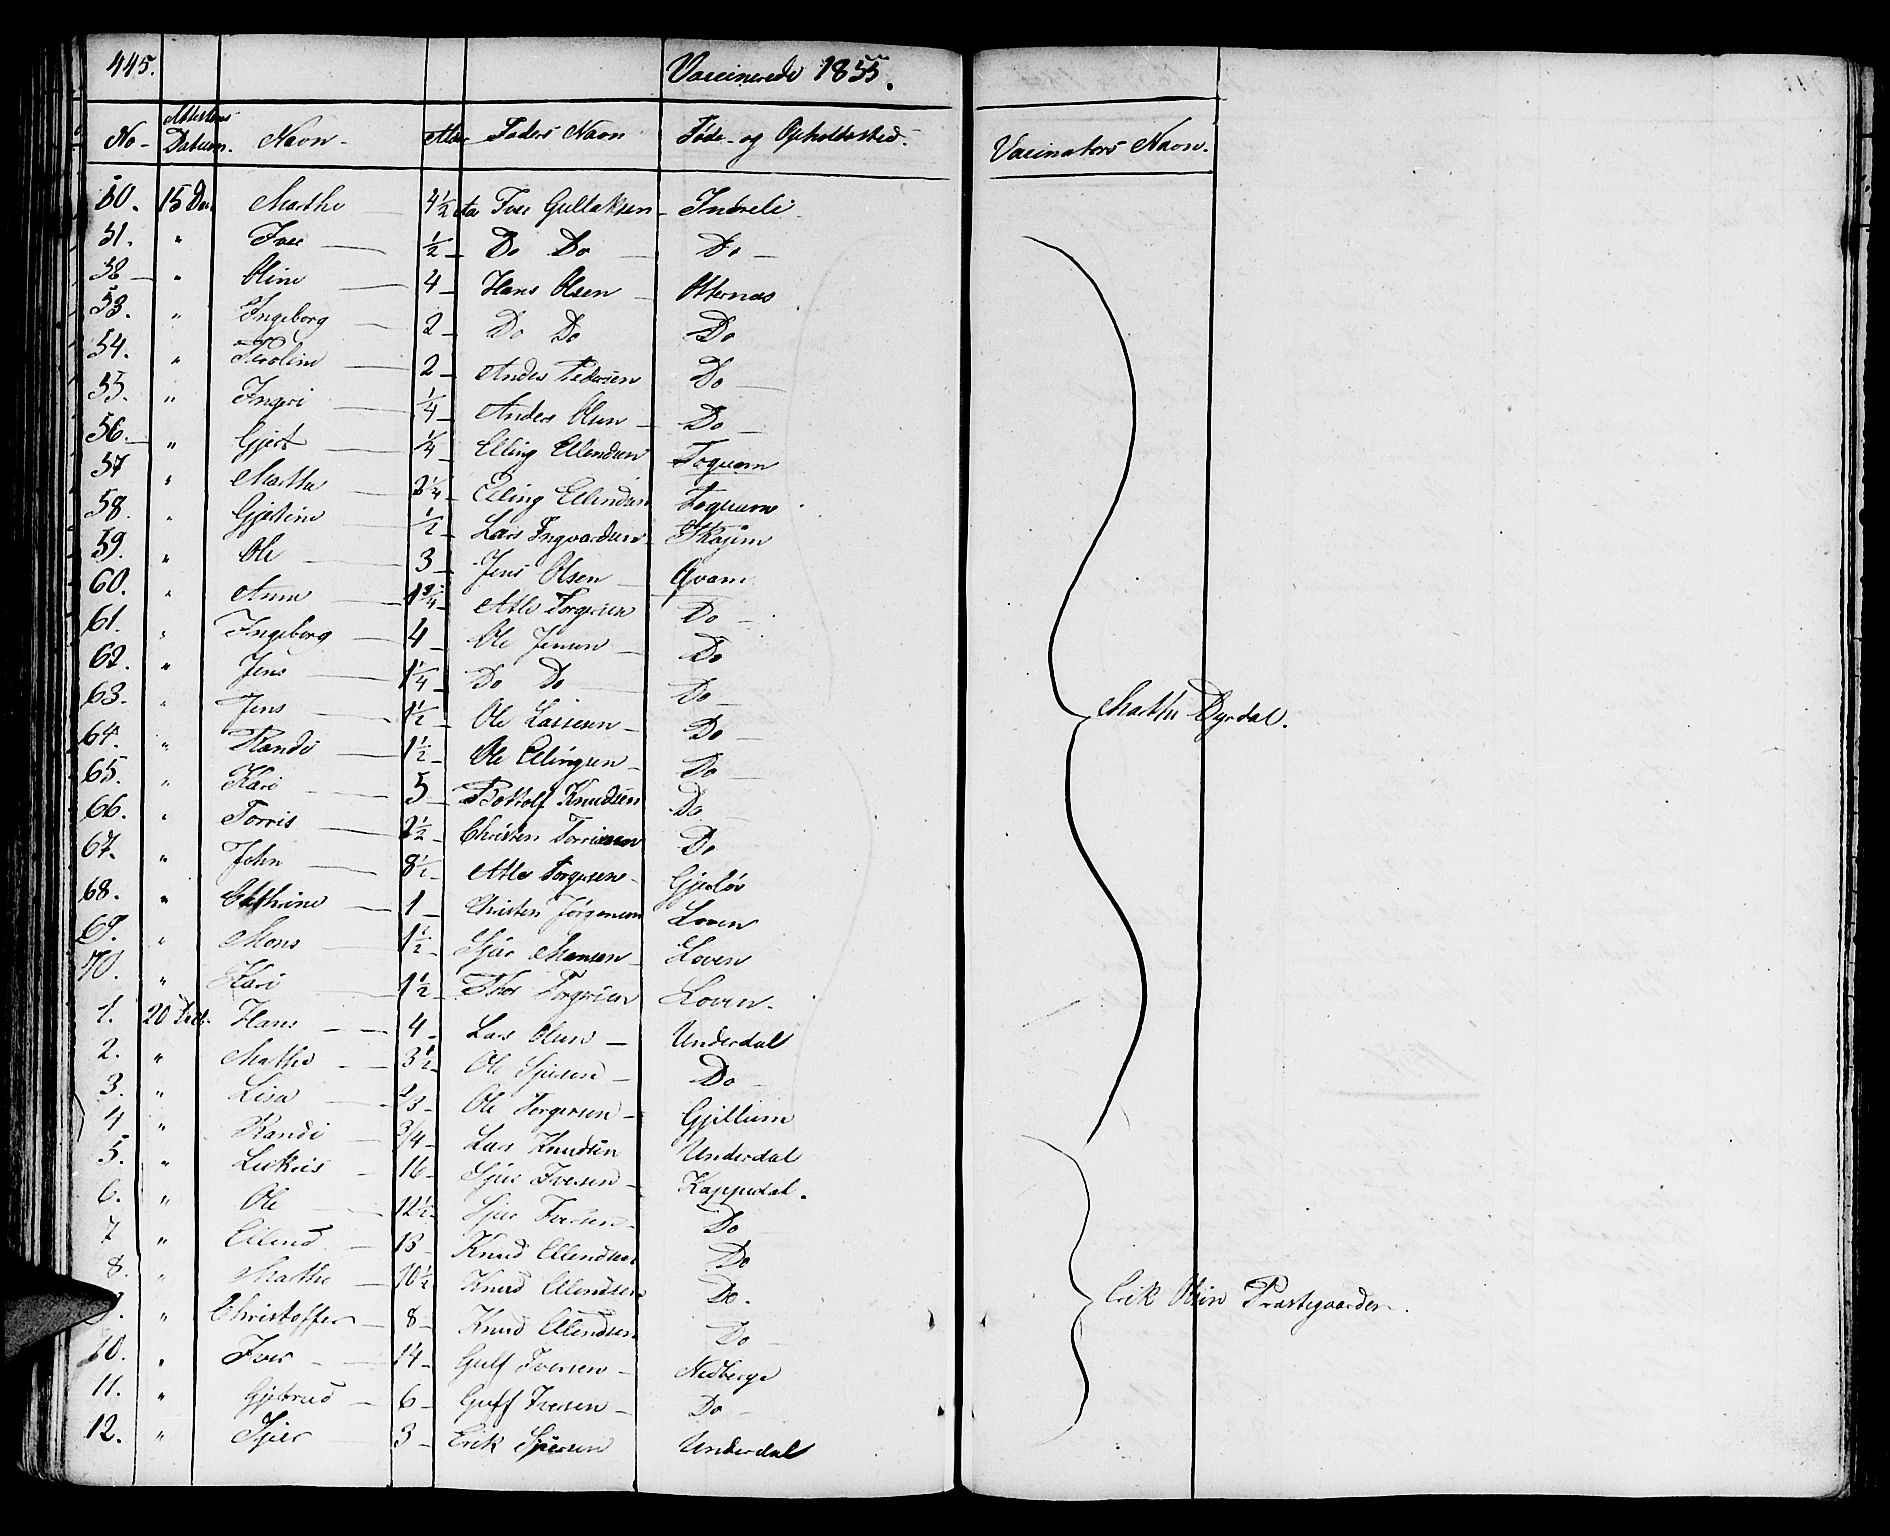 445. Vaccinerede 1855.
No - Attestens Datum. Navn - Alder Faders Navn Føde- og Opholdssted. Vaccinators Navn.
50. 15 Dec. Marthe 4½ Aar Iver Gulleiksen - Indreli
51. " Iver ½ Do Do Do
52 " Oline 4 Hans Olsen Otternæs
53. " Ingeborg 2 Do Do Do
54. " Caroline 2 Anders Pedersen Do
55. " Ingeri ¼ Anders Olsen Do
56. " Gjert ¼ Elling Ellendsen Toqvam
57 " Martha 2¼ Elling Ellendsen Toqvam
58. " Gjertine ½ Lars Ingvardsen Skajem
59. " Ole 3 Jens Olsen Qvam
60. " Anna 1¾ Atle Torgersen Do
61. " Ingeborg 4 Ole Jensen Do
62. " Jens 1¼ Do Do Do
63. " Jens 1½ Ole Lassesen Do
Marthe Dyrdal.
64. " Randi 1½ Ole Ellingsen Do
65. " Kari 5 Bottolf Knudsen Do
66. " Torris 2½ Christen Torrisen Do
67. " John 8½ Atle Torgersen Gjerløv
68. " Cathrine 1 Christen Jørgensen Loven
69. " Mons 1½ Sjur Monsen Loven
70. " Kari 1½ Thor Torgersen Loven
1. 20 Dec. Hans 4 Lars Olsen Underdal
2. " Marthe 3½ Ole Sjursen Do
3. " Lisa ⅔ Ole Torgersen Gjellum
4 " Randi ¾ Lars Knudsen Underdal
5. " Lukris 16 Sjur Iversen Kappadal.
6. " Ole 12½ Sjur Iversen Do
7 " Ellend 13 Knud Ellendsen Do
8. " Marthe 10½ Knud Ellendsen Do.
9. " Christoffer 8 Knud Ellendsen Do
Erik Olsen Præstegaarden.
10. " Iver 14 Gulf Iversen Nedberge
11. " Gjertrud 6 Gulf Iversen Do
12. " Sjur 3 Erik Sjursen Underdal